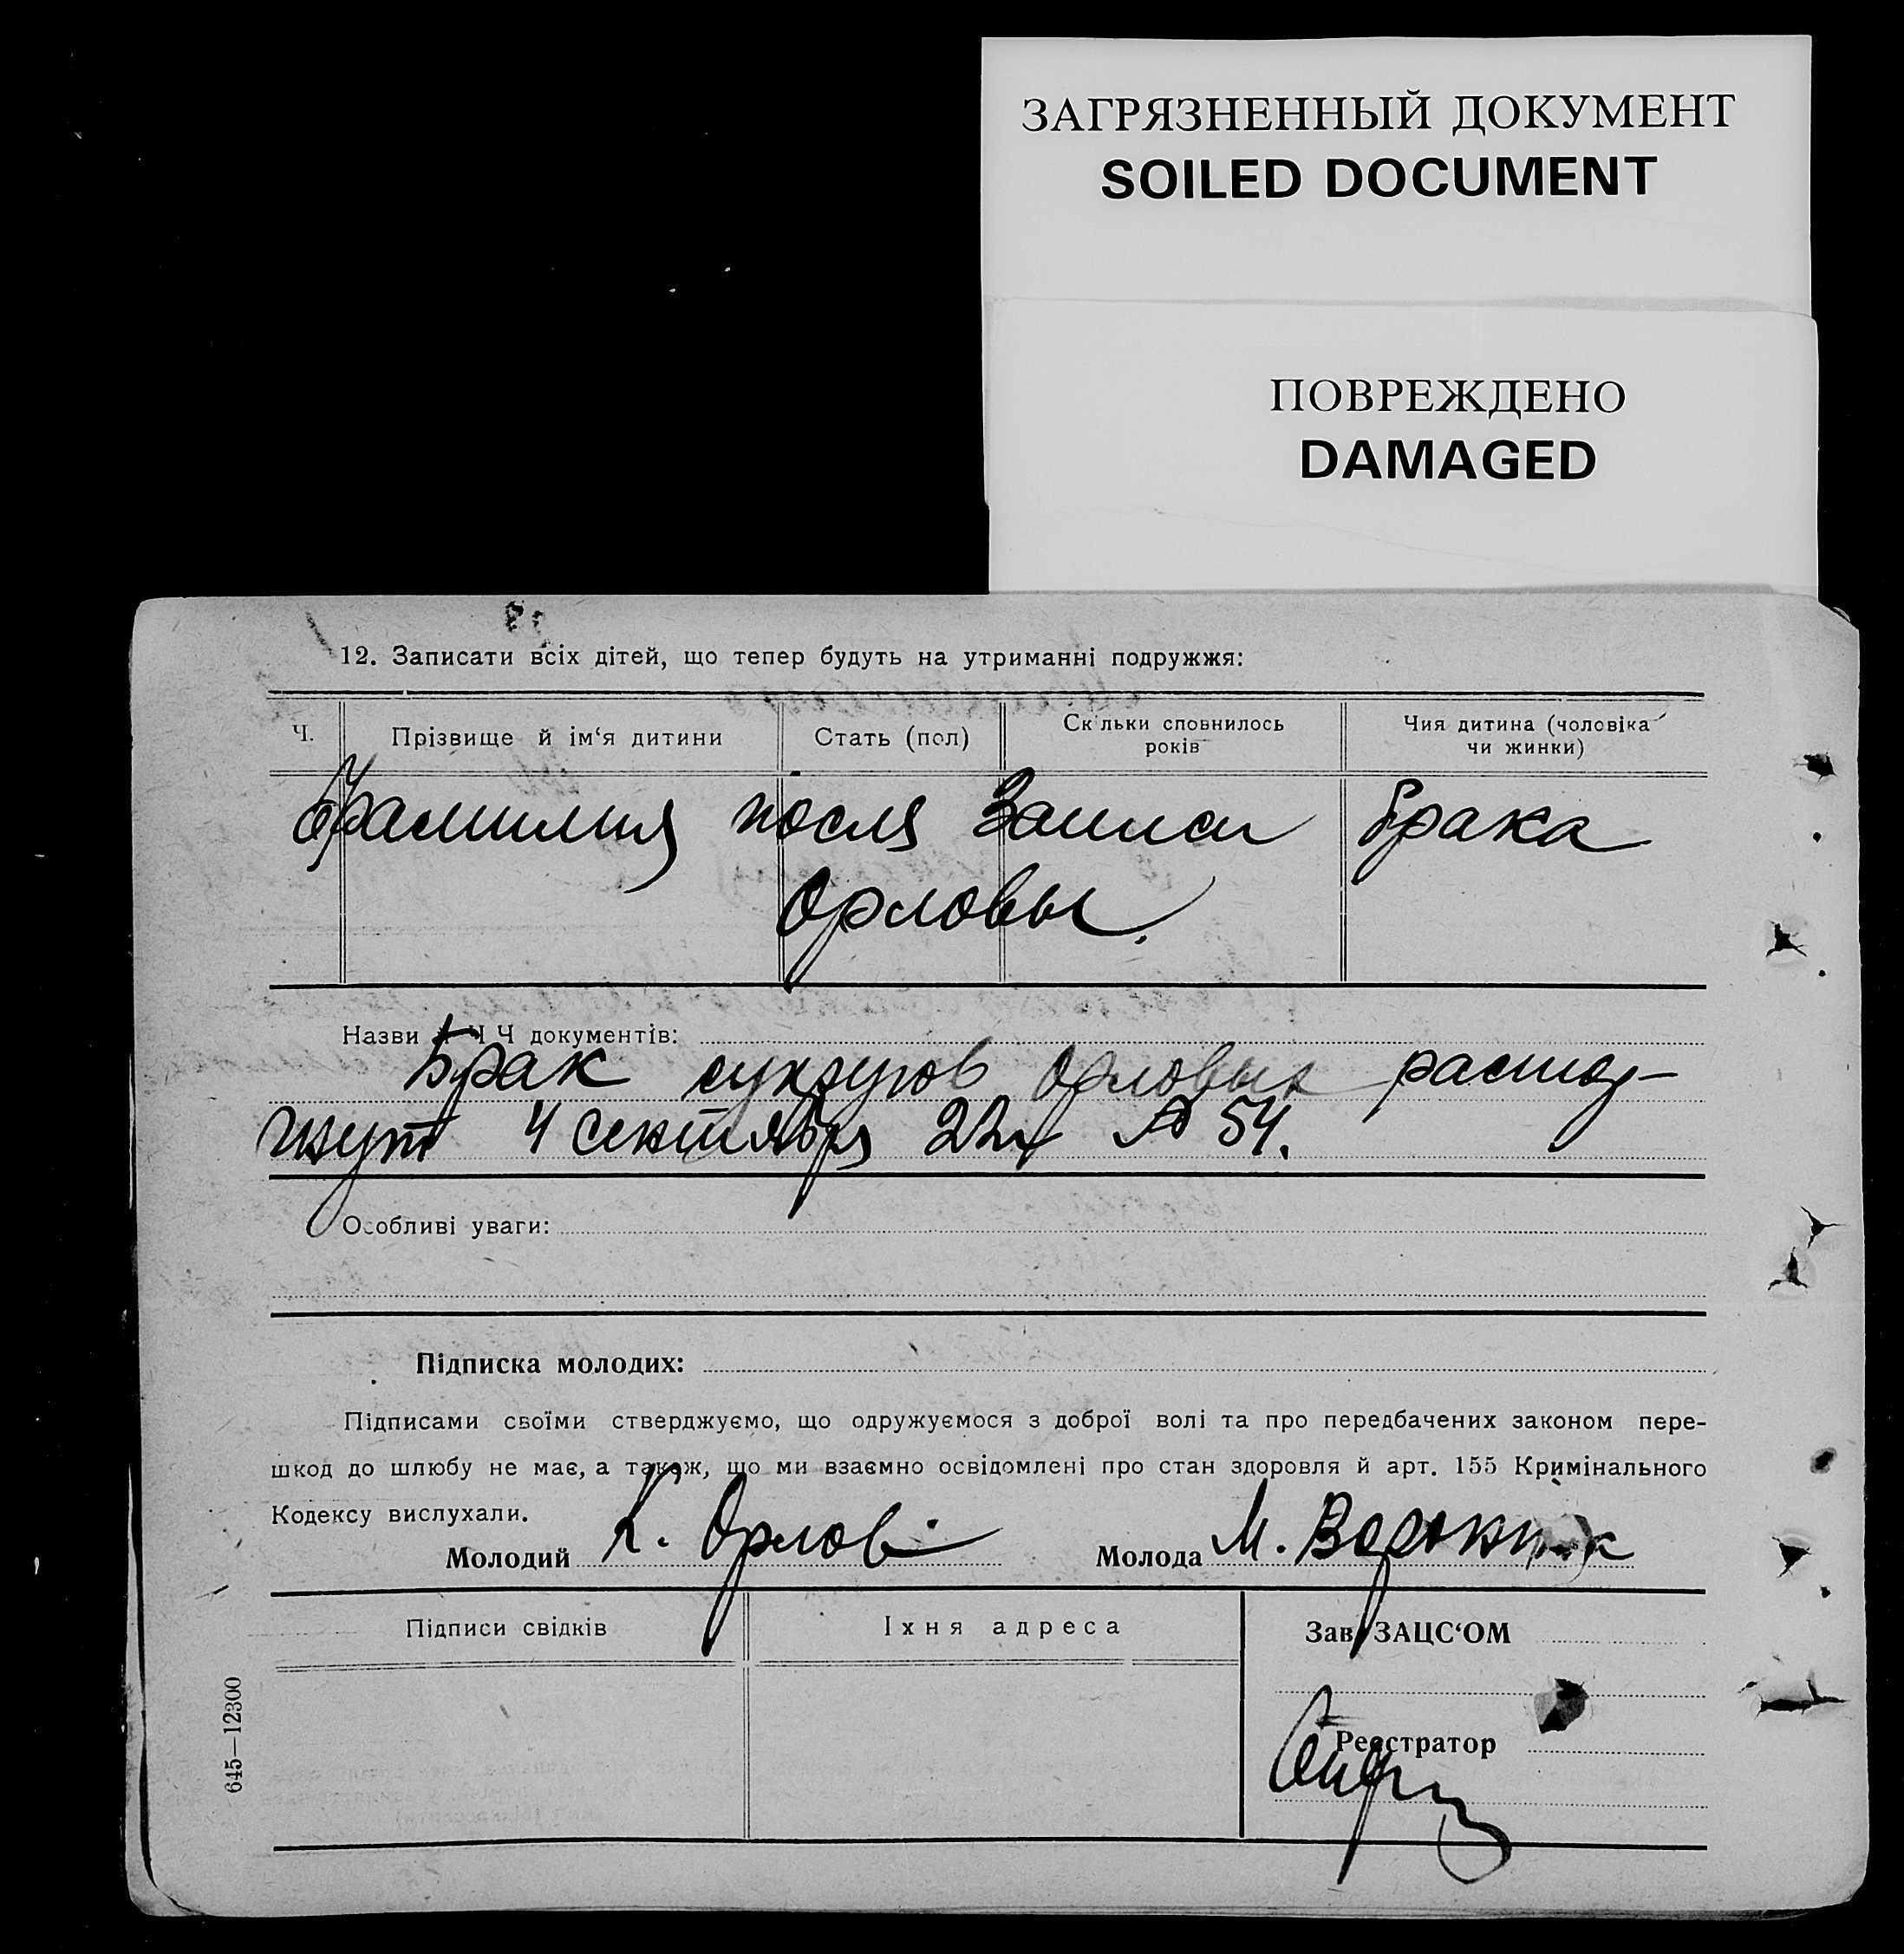 ЗАГРЯЗНЕННЫЙ ДОКУМЕНТ
SOILED DOCUMENT
ПОВРЕЖДЕНО
DAMAGED
12. Записати всіх дітей, що тепер будуть на утриманні подружжя:
Ч. Прізвище й ім‘я дитини Стать (пол) Скільки сповнилось років Чия дитина (чоловіка чи жинки)
Фамилия посля Записи брака
Орловы.
Назви й Ч Ч документів:
Брак супругов Орловых растор-
гнут 4 сентября 22г № 54.
Особливі уваги:
Підписка молодих:
Підписами своїми стверджуємо, що одружуємося з доброї волі та про передбачених законом пере-
шкод до шлюбу не має, а також, що ми взаємно освідомлені про стан здоровля й арт. 155 Кримінального
Кодексу вислухали.
Молодий К. Орлов Молода М.
Підписи свідків Їхня адреса Зав. ЗАЦС‘ОМ
Реєстратор
645—12300